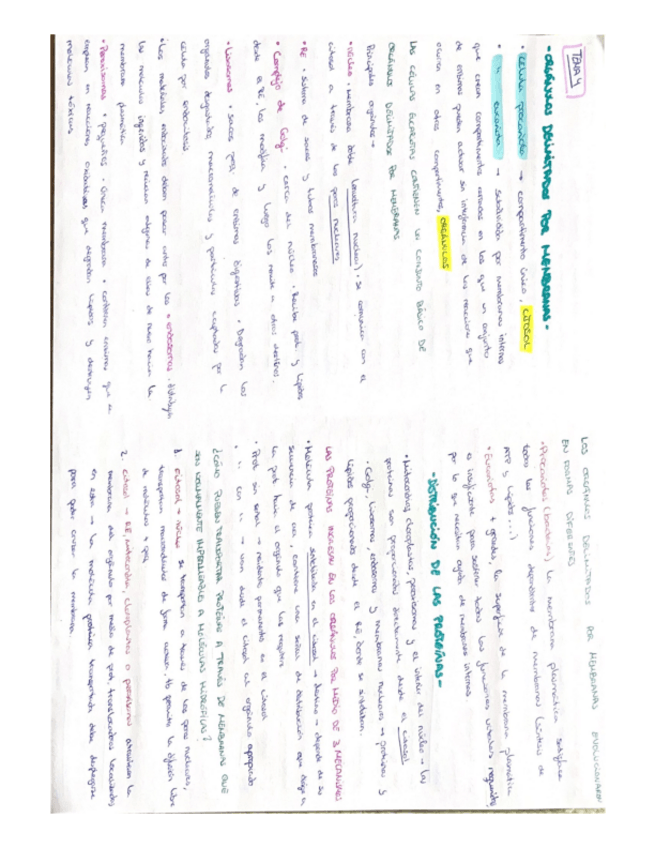 TEMA 4
- ORGÁNULOS DELIMITADOS POR MEMBRANAS -
• célula procariota → compartimento único, CITOSOL
• " eucariota → subdividida por membranas internas
que crean compartimentos cerrados en los que un conjunto
de enzimas pueden actuar sin interferencia de las reacciones que
ocurren en otros compartimentos, ORGÁNULOS
LAS CÉLULAS EUCARIOTAS CONTIENEN UN CONJUNTO BÁSICO DE
ORGÁNULOS DELIMITADOS POR MEMBRANAS
Principales orgánulos →
• Núcleo • membrana doble (envoltura nuclear), se comunica con el
citosol a través de los poros nucleares
• RE • sistema de sacos y tubos membranosos
• Complejo de Golgi • cerca del núcleo • Recibe prot. y lípidos
desde el RE, los modifica y luego los remite a otros destinos.
• Lisosomas • sacos peq. de enzimas digestivas • Degradan los
orgánulos desgastados, macromoléculas y partículas captadas por la
célula por endocitosis
• Los materiales endocitados deben pasar antes por los • endosomas: distribuyen
las moléculas ingeridas y reciclan algunas de ellas de nuevo hacia la
membrana plasmática
• Peroxisomas • pequeños • única membrana • contienen enzimas que se
emplean en reacciones oxidativas que degradan lípidos y destruyen
moléculas tóxicas
LOS ORGÁNULOS DELIMITADOS POR MEMBRANAS EVOLUCIONARON
EN FORMAS DIFERENTES
• Procariotas (bacterias) la membrana plasmática satisface
todas las funciones dependientes de membranas (síntesis de
ATP y lípidos...)
• Eucariotas + grandes la superficie de la membrana plasmática
es insuficiente para sostener todas las funciones vitales requeridas
por lo que necesitan ayuda de membranas internas
- DISTRIBUCIÓN DE LAS PROTEÍNAS -
• Mitocondrias, cloroplastos, peroxisomas y el interior del núcleo → las
proteínas son proporcionadas directamente desde el citosol
• Golgi, lisosomas, endosomas y membranas nucleares → proteínas y
lípidos proporcionados desde el RE, donde se sintetizan.
LAS PROTEÍNAS INGRESAN EN LOS ORGÁNULOS POR MEDIO DE 3 MECANISMOS
• Molécula proteica sintetizada en el citosol → destino → depende de su
secuencia de aa, contiene una señal de distribución que dirige a
la prot. hacia el orgánulo que las requiera
• Prot. sin señal → residente permanente en el citosol
• " con " → van desde el citosol al orgánulo apropiado
¿CÓMO PUEDEN TRANSPORTAR PROTEÍNAS A TRAVÉS DE MEMBRANAS QUE
SON NORMALMENTE IMPERMEABLES A MOLÉCULAS HIDRÓFILAS?
1. citosol → núcleo se transportan a través de los poros nucleares,
transportan macromoléculas de forma activa. Tb permite la difusión libre
de moléculas + peq.
2. citosol → RE, mitocondrias, cloroplastos o peroxisomas atraviesan la
membrana del orgánulo por medio de prot. translocadoras localizadas
en esta → la molécula proteica transportada debe desplegarse
para poder cruzar la membrana